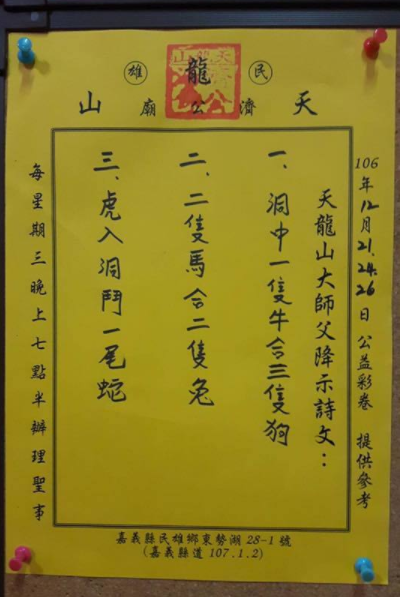 民 龍 雄
天 濟 公 廟 山
106年12月21.24.26日 公益彩卷 提供參考
天龍山大師父降示詩文：
一、洞中一隻牛合三隻狗
二、二隻馬合二隻兔
三、虎入洞鬥一尾蛇
每星期三晚上七點半辦理聖事
嘉義縣民雄鄉東勢湖28-1號
(嘉義縣道107.1.2)